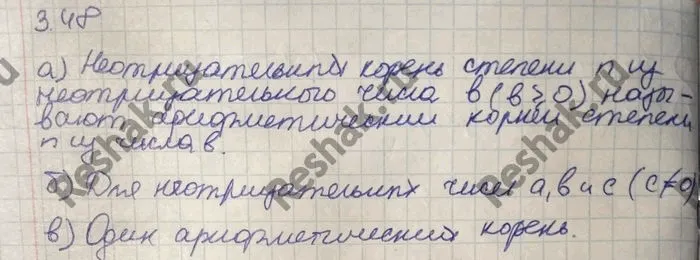 3.48
а) Неотрицательный корень степени n из
неотрицательного числа в (в ≥ 0) назы-
вают арифметический корней степени
n из числа в.
б) Для неотрицательных чисел а, в и с (с≠0)
в) Один арифметический корень.
Reshak.ru
Reshak.ru
Reshak.ru